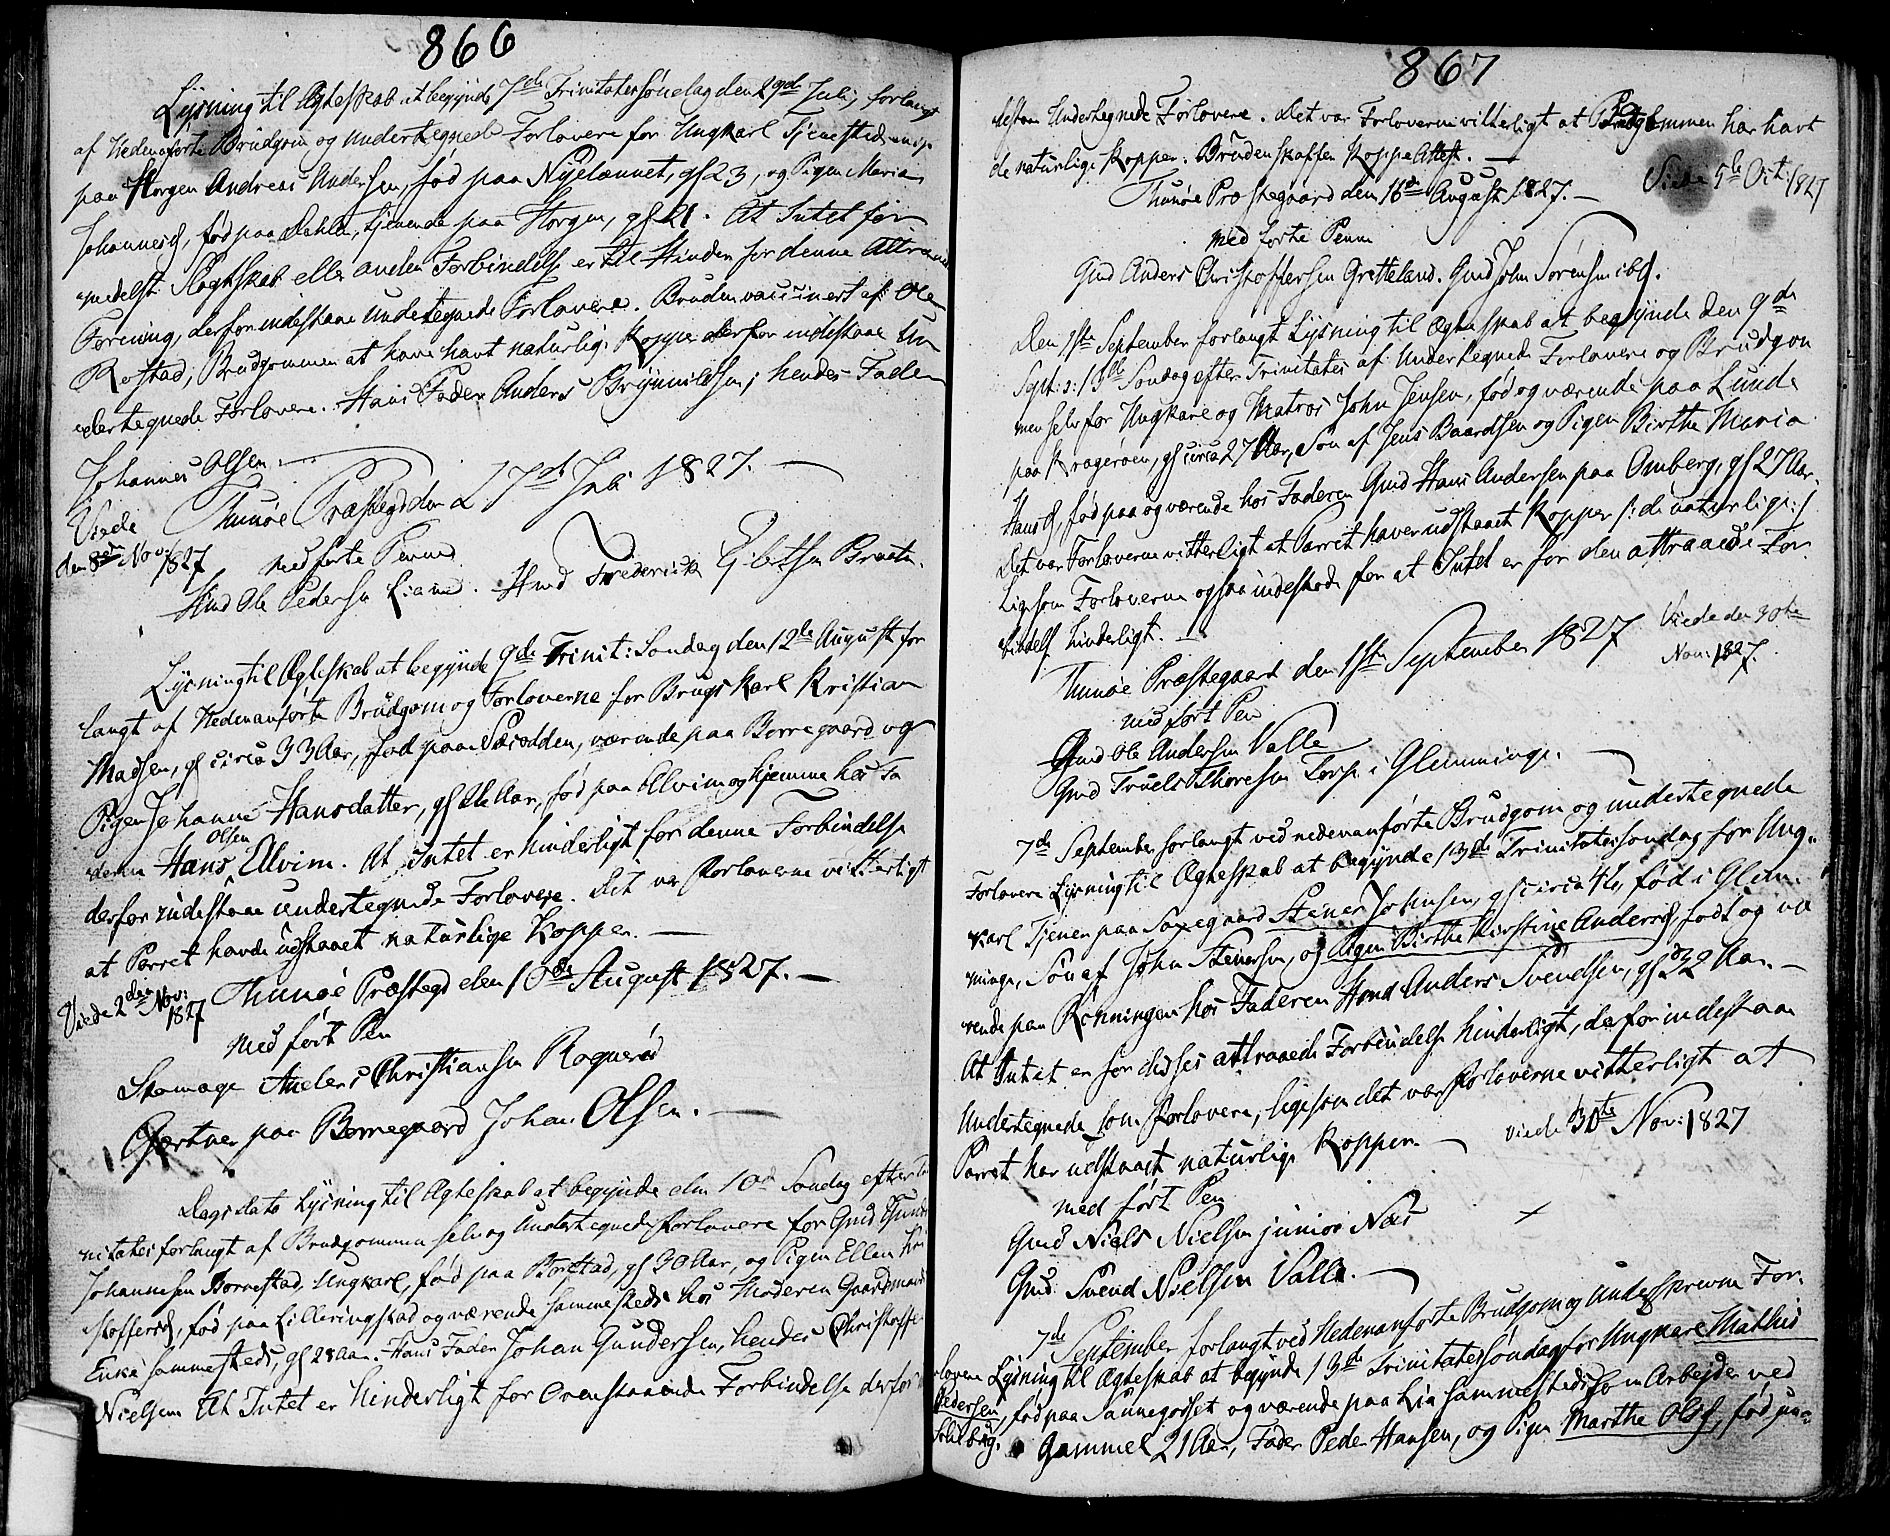 866
Lysning til Ægteskab at begynde 7de Trinitatis Søndag den 29de Juli, forlangt
af Nedenaførte Brudgom og undertegnede Forlovere for Ungkarl Tjenestedreng
paa Horgen Andreas Andersen, fød paa Nyelænnet, gl 23, og Pigen Maria
Johannesd, fød paa Dahle, tjenende paa Horgen, gl 21. At Intet som
medelst Slegtskab eller anden Forbindelse er til Hinder for denne Attraaede
Forening, derfor indestaae undertegnede Forlovere. Bruden vaccineret af Ole
Rostad; Brudgommen at have havt naturlige Kopper derfor indestaae Un
dertegnede Forlovere. Hans Fader Anders Brynnildsen; hendes Fader
Johannes Olsen.
Thunøe Præstegd den 27de Juli 1827.
Viede
den 8de Nov: 1827
med førte Penne
Hmd Ole Pedersen Liane. Hmd Frederich Gilertsen Braaten.
Lysning til Ægteskab at begynde 9de Trinit: Søndag den 12te August for
langt af Nedenanførte Brudgom og Forloverne for Brugs Karl Kristian
Madsen, gl circa 33 Aar, fød paa Særodden, værende paa Borregaard og
Pigen Johanne Hansdatter, gl Aar, fød paa Elvim og hjemme hos Fa
deren Hans Olsen Elvim. At Intet er hinderligt for denne Forbindelse
derfor indestaae undertegnede Forlovere. Det var Forloverne vitterligt
at Parret havde udstaaet naturlige Kopper.
Viede 2den Nov: 1827
Thunøe Præstegd den 10de August 1827.
med ført Pen
Skomager Anders Christiansen Roquerød
Gartner paa Borregaard Johan Olsen.
Dags dato Lysning til Ægteskab at begynde den 10de Søndag efter Tri
nitatis forlangt af Brudgommen selv og Undertegnede Forlovere for Gmd Gunder
Johannesen Borrestad, Ungkarl, fød paa Borstad, gl 30 Aar, og Pigen Ellen Kri
stoffersd, fød paa Lilleringstad og værende sammesteds hos Moderen Gaardmand
Enke sammesteds, gl 28 Aar. Hans Fader Johan Gundersen, hendes Christoffer
Nielsen At Intet er hinderligt for Ovenstaaende Forbindelse derfor
867
destaae Undertegnede Forlovere. Det var Forloverne vitterligt at Brudgommen har havt
de naturlige Kopper. Bruden skaffer Koppe Attest.
Thunøe Præstegaard den 16de August 1827.
Viede 5te Oct: 1827
med førte Penne
Gmd Anders Christoffersen Gretteland. Gmd John Sørensen ibd.
Den 1ste September forlangt Lysning til Ægteskab at begynde den 9de
Sept: s: 13de Søndag efter Trinitatis af Undertegnede Forlovere og Brudgom
men selv for Ungkarl og Matros John Jensen, fød og værende paa Lunde
paa Kragerøen, gl circa 27 Aar, Søn af Jens Baardsen og Pigen Birthe Maria
Hansd, fød paa og værende hos Faderen Gmd Hans Andersen paa Omberg, gl 27 Aar.
Det var Forloverne vitterligt at Parret haver udstaaet Kopper /: de naturlige :/
Ligesom Forloverne ogsaa indestode for at Intet er for den attraaede For
bindelse hinderligt.
Thunøe Præstegaard den 1ste September 1827
Viede den 30te
Nov: 1827.
med ført Pen
Gmd Ole Andersen Valle
Gmd Truels Thoresen Torp i Glemminge.
7de September forlangt ved nedenanførte Brudgom og undertegnede
Forlovere Lysning til Ægteskab at begynde 13de Trinitatis Søndag for Ung
karl Tjener paa Soxegaard Stener Johnsen, gl circa 40, fød i Glem
minge, Søn af John Stenersen, og Pigen Birthe Kirstine Andersd, født og væ
rende paa Rønningen hos Faderen Hmd Anders Svendsen, gl 32 Aar.
At Intet er for disses attraaede Forbindelse hinderligt, derfor indestaae
Undertegnede som Forlovere, ligesom det var Forloverne vitterligt at
Parret har udstaaet naturlige Kopper.
viede 30te Nov: 1827
med ført Pen
Gmd Niels Nielsen junior Næs
Gmd Svend Nielsen Valle.
7de September forlangt ved Nedenanførte Brudgom og underskrevne For
lovere Lysning til Ægteskab at begynde 13de Trinitatis Søndag for Ungkarl Mathis
Pedersen, fød paa Sannegodset og værende paa Lia sammesteds som Arbejder ved
Solberg. Gammel 21 Aar, Fader Peder Hansen, og Pigen Marthe Olsd, fød paa